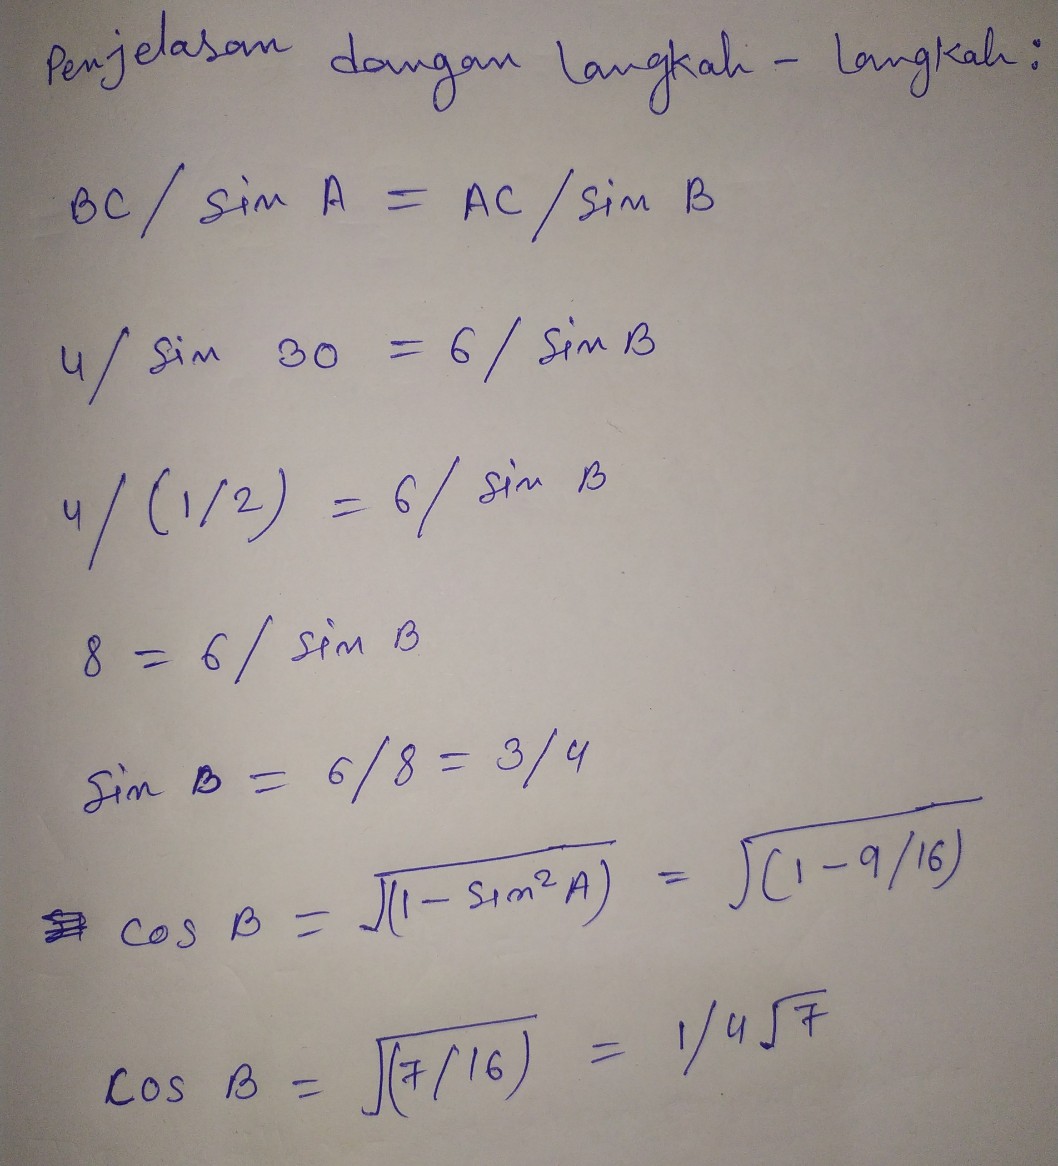 Penjelasan dangan langkah - langkah:
BC / sin A = AC / sin B
4 / sin 30 = 6 / sin B
4 / (1/2) = 6 / sin B
8 = 6 / sin B
sin B = 6/8 = 3/4
cos B = √(1 - sin² A) = √(1 - 9/16)
cos B = √(7/16) = 1/4√7